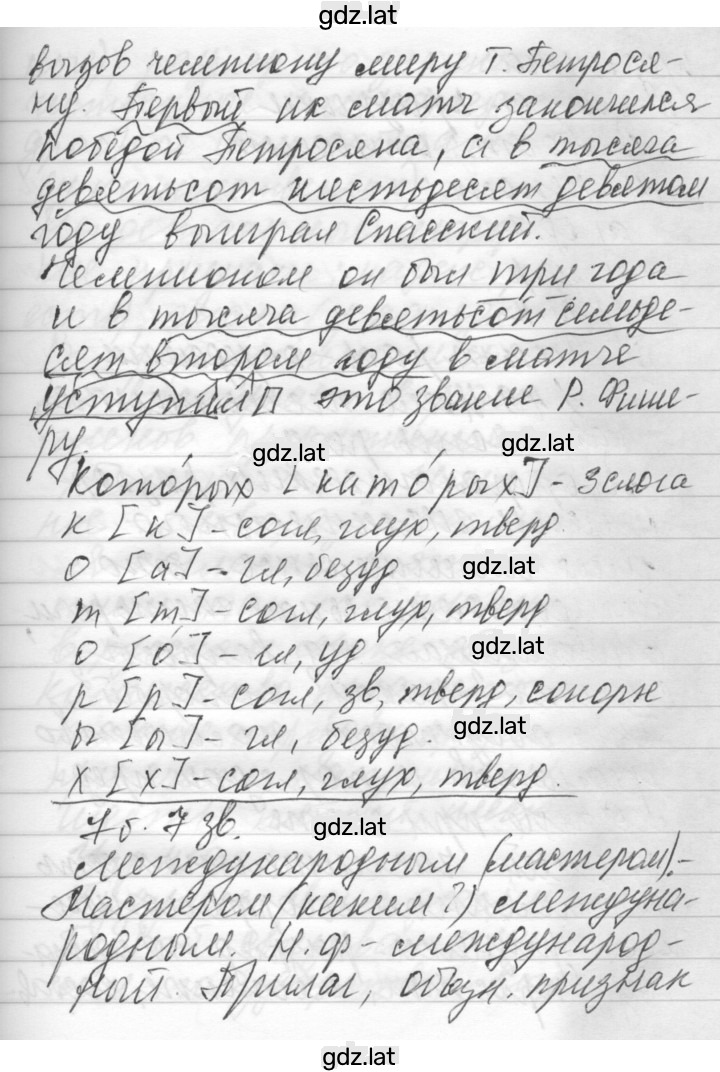 gdz.lat
вызов чемпиону миру Т. Петрося-
ну. Первый их матч закончился
победой Петросяна, а в тысяча
девятьсот шестьдесят девятом
году выиграл Спасский.
Чемпионом он был три года
и в тысяча девятьсот семьде-
сят втором году в матче
уступил П это звание Р. Фише-
ру.
gdz.lat gdz.lat
которых [каторых] - 3 слога
к [к] - согл, глух, тверд.
о [а] - гл, безуд gdz.lat
т [т] - согл, глух, тверд
о [о́] - гл, уд gdz.lat
р [р] - согл, зв, тверд, сонорн
ы [ы] - гл, безуд. gdz.lat
х [х] - согл, глух, тверд.
7 б. 7 зв. gdz.lat
международным (мастером). -
Мастером (каким?) междуна-
родным. Н.ф - международ-
ный. Прилаг, обозн. признак
gdz.lat